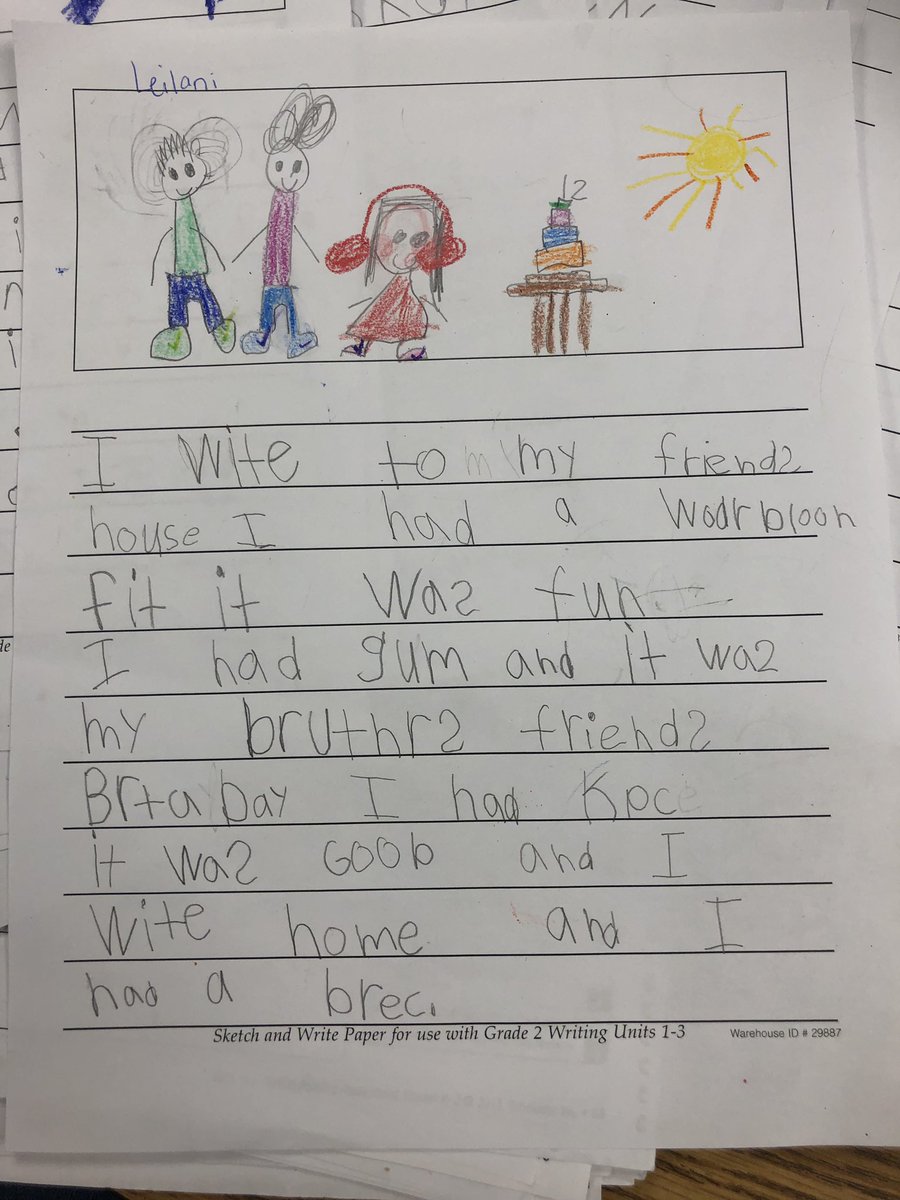 Leilani
12
I wite to my friends
house I had a wodr bloon
fit it was fun
I had gum and it was
my bruthrs friends
Brta bay I had Kpce
it was GOOb and I
wite home and I
had a brec.
Sketch and Write Paper for use with Grade 2 Writing Units 1-3
Warehouse ID # 29887